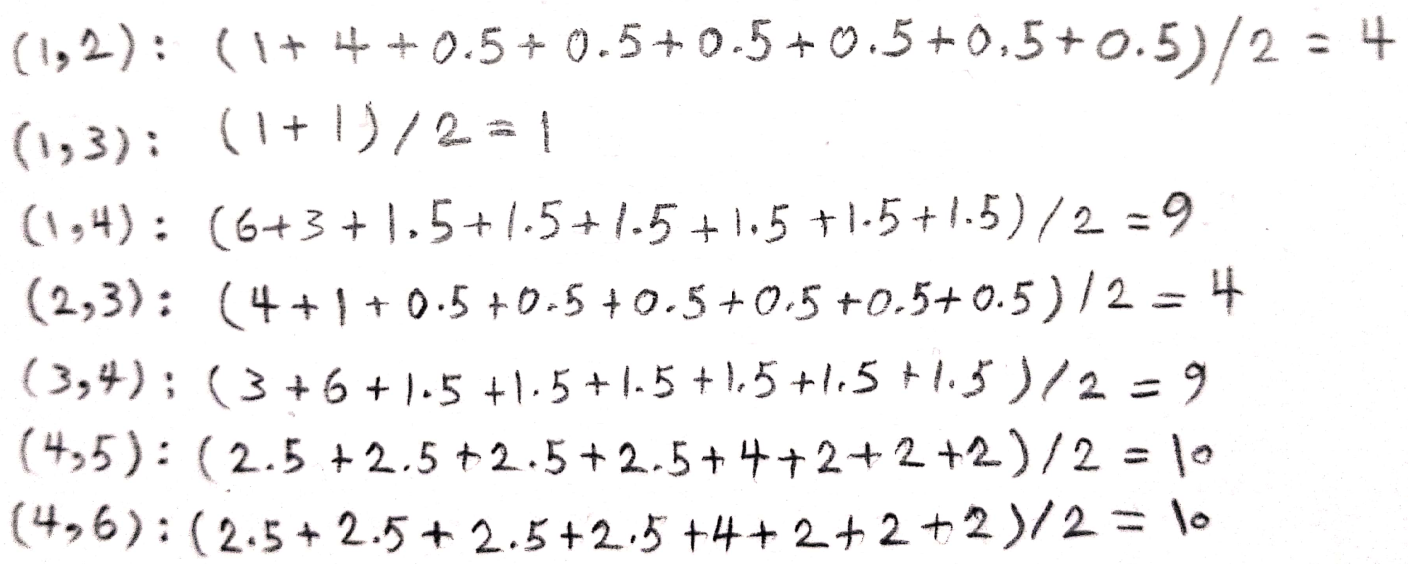 (1,2): (1+4+0.5+0.5+0.5+0.5+0.5+0.5)/2 = 4
(1,3): (1+1)/2=1
(1,4): (6+3+1.5+1.5+1.5+1.5+1.5+1.5)/2=9
(2,3): (4+1+0.5+0.5+0.5+0.5+0.5+0.5)/2=4
(3,4): (3+6+1.5+1.5+1.5+1.5+1.5+1.5)/2=9
(4,5): (2.5+2.5+2.5+2.5+4+2+2+2)/2=10
(4,6): (2.5+2.5+2.5+2.5+4+2+2+2)/2=10